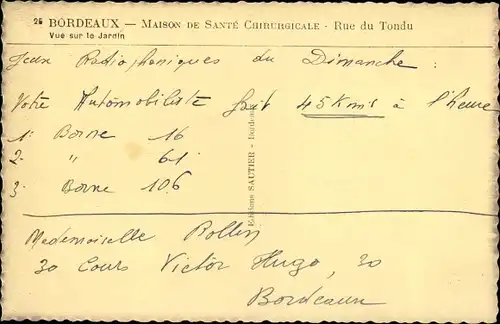 25 BORDEAUX — MAISON DE SANTÉ CHIRURGICALE - Rue du Tondu
Vue sur le Jardin
Jeux Radiophoniques du Dimanche :
Votre Automobiliste fait 45 Kms à l'heure
1. Borne 16
2. " 61
3. Borne 106
Editions SAUTIER - Bordeaux
Mademoiselle Rollin
30 Cours Victor Hugo, 30
Bordeaux